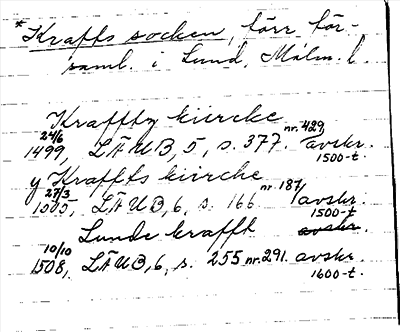 *Kraffts socken, förr för-
saml. i Lund, Malm. l.
Kraffty kiircke
24/6 1499, LÄUB, 5, s. 377. nr. 429, avskr. 1500-t.
y Kraffts kirche
27/3 1505, LÄUB, 6, s. 166 nr 187, avskr. 1500-t.
Lunde krafft avskr.
10/10 1508, LÄUB, 6, s. 255 nr. 291. avskr. 1600-t.